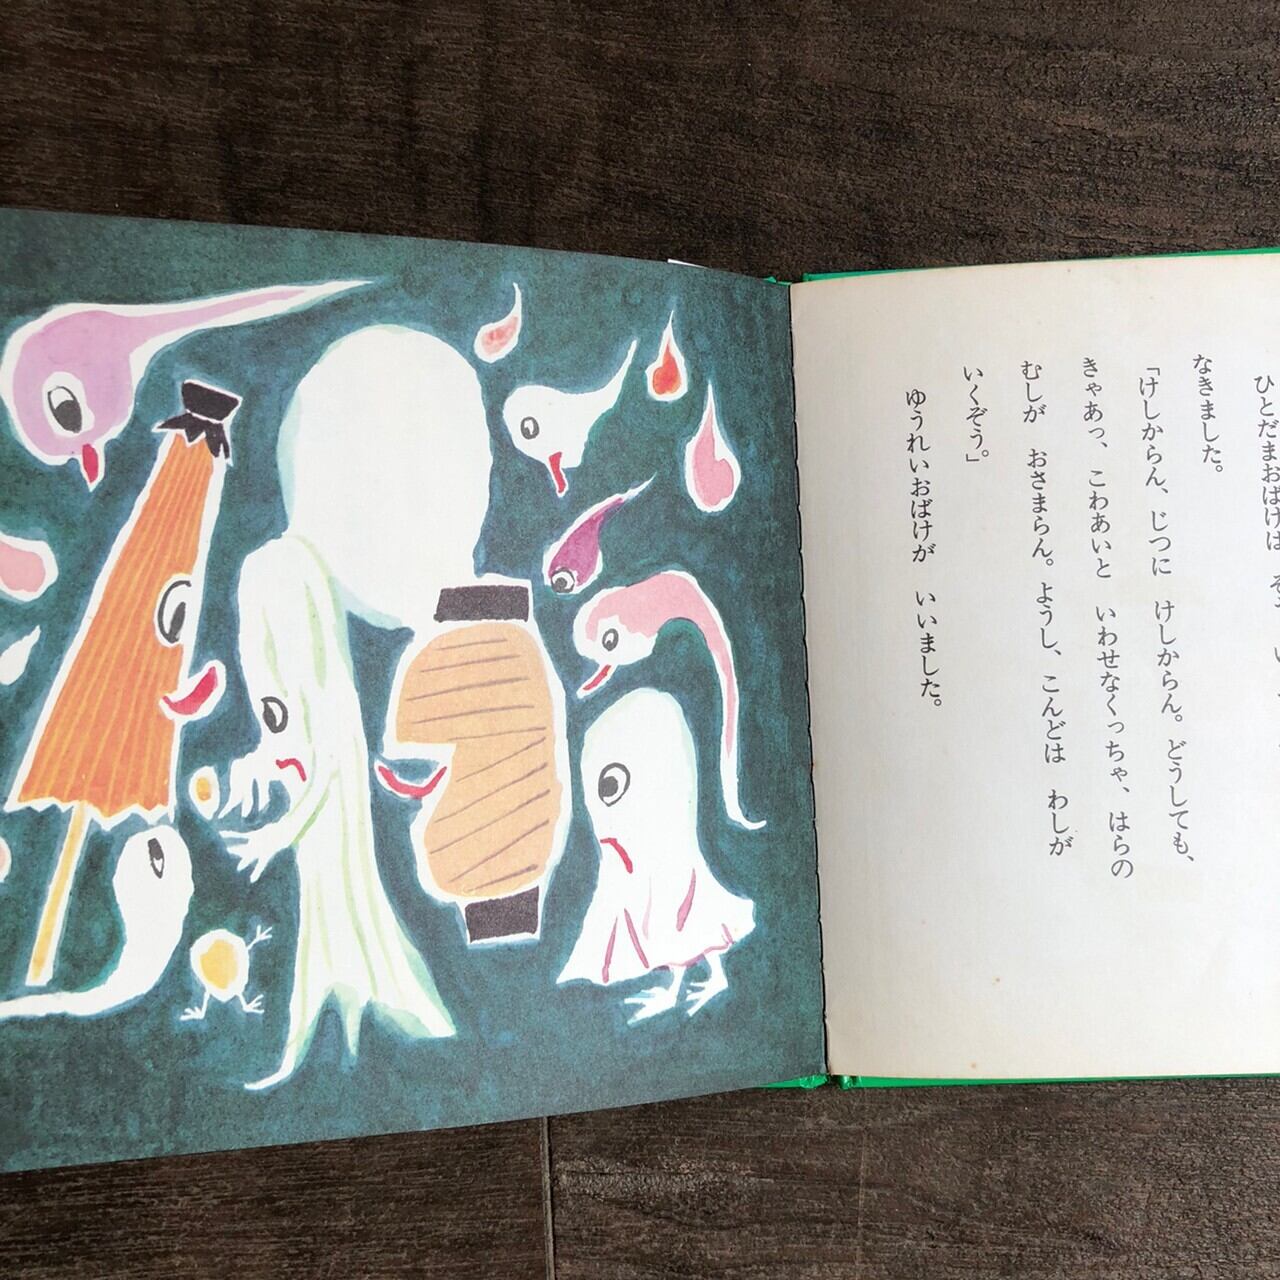 ひとだまおばけは
なきました。
「けしからん、じつに　けしからん。どうしても、
きゃあっ、こわあいと　いわせなくっちゃ、はらの
むしが　おさまらん。ようし、こんどは　わしが
いくぞう。」
ゆうれいおばけが　いいました。